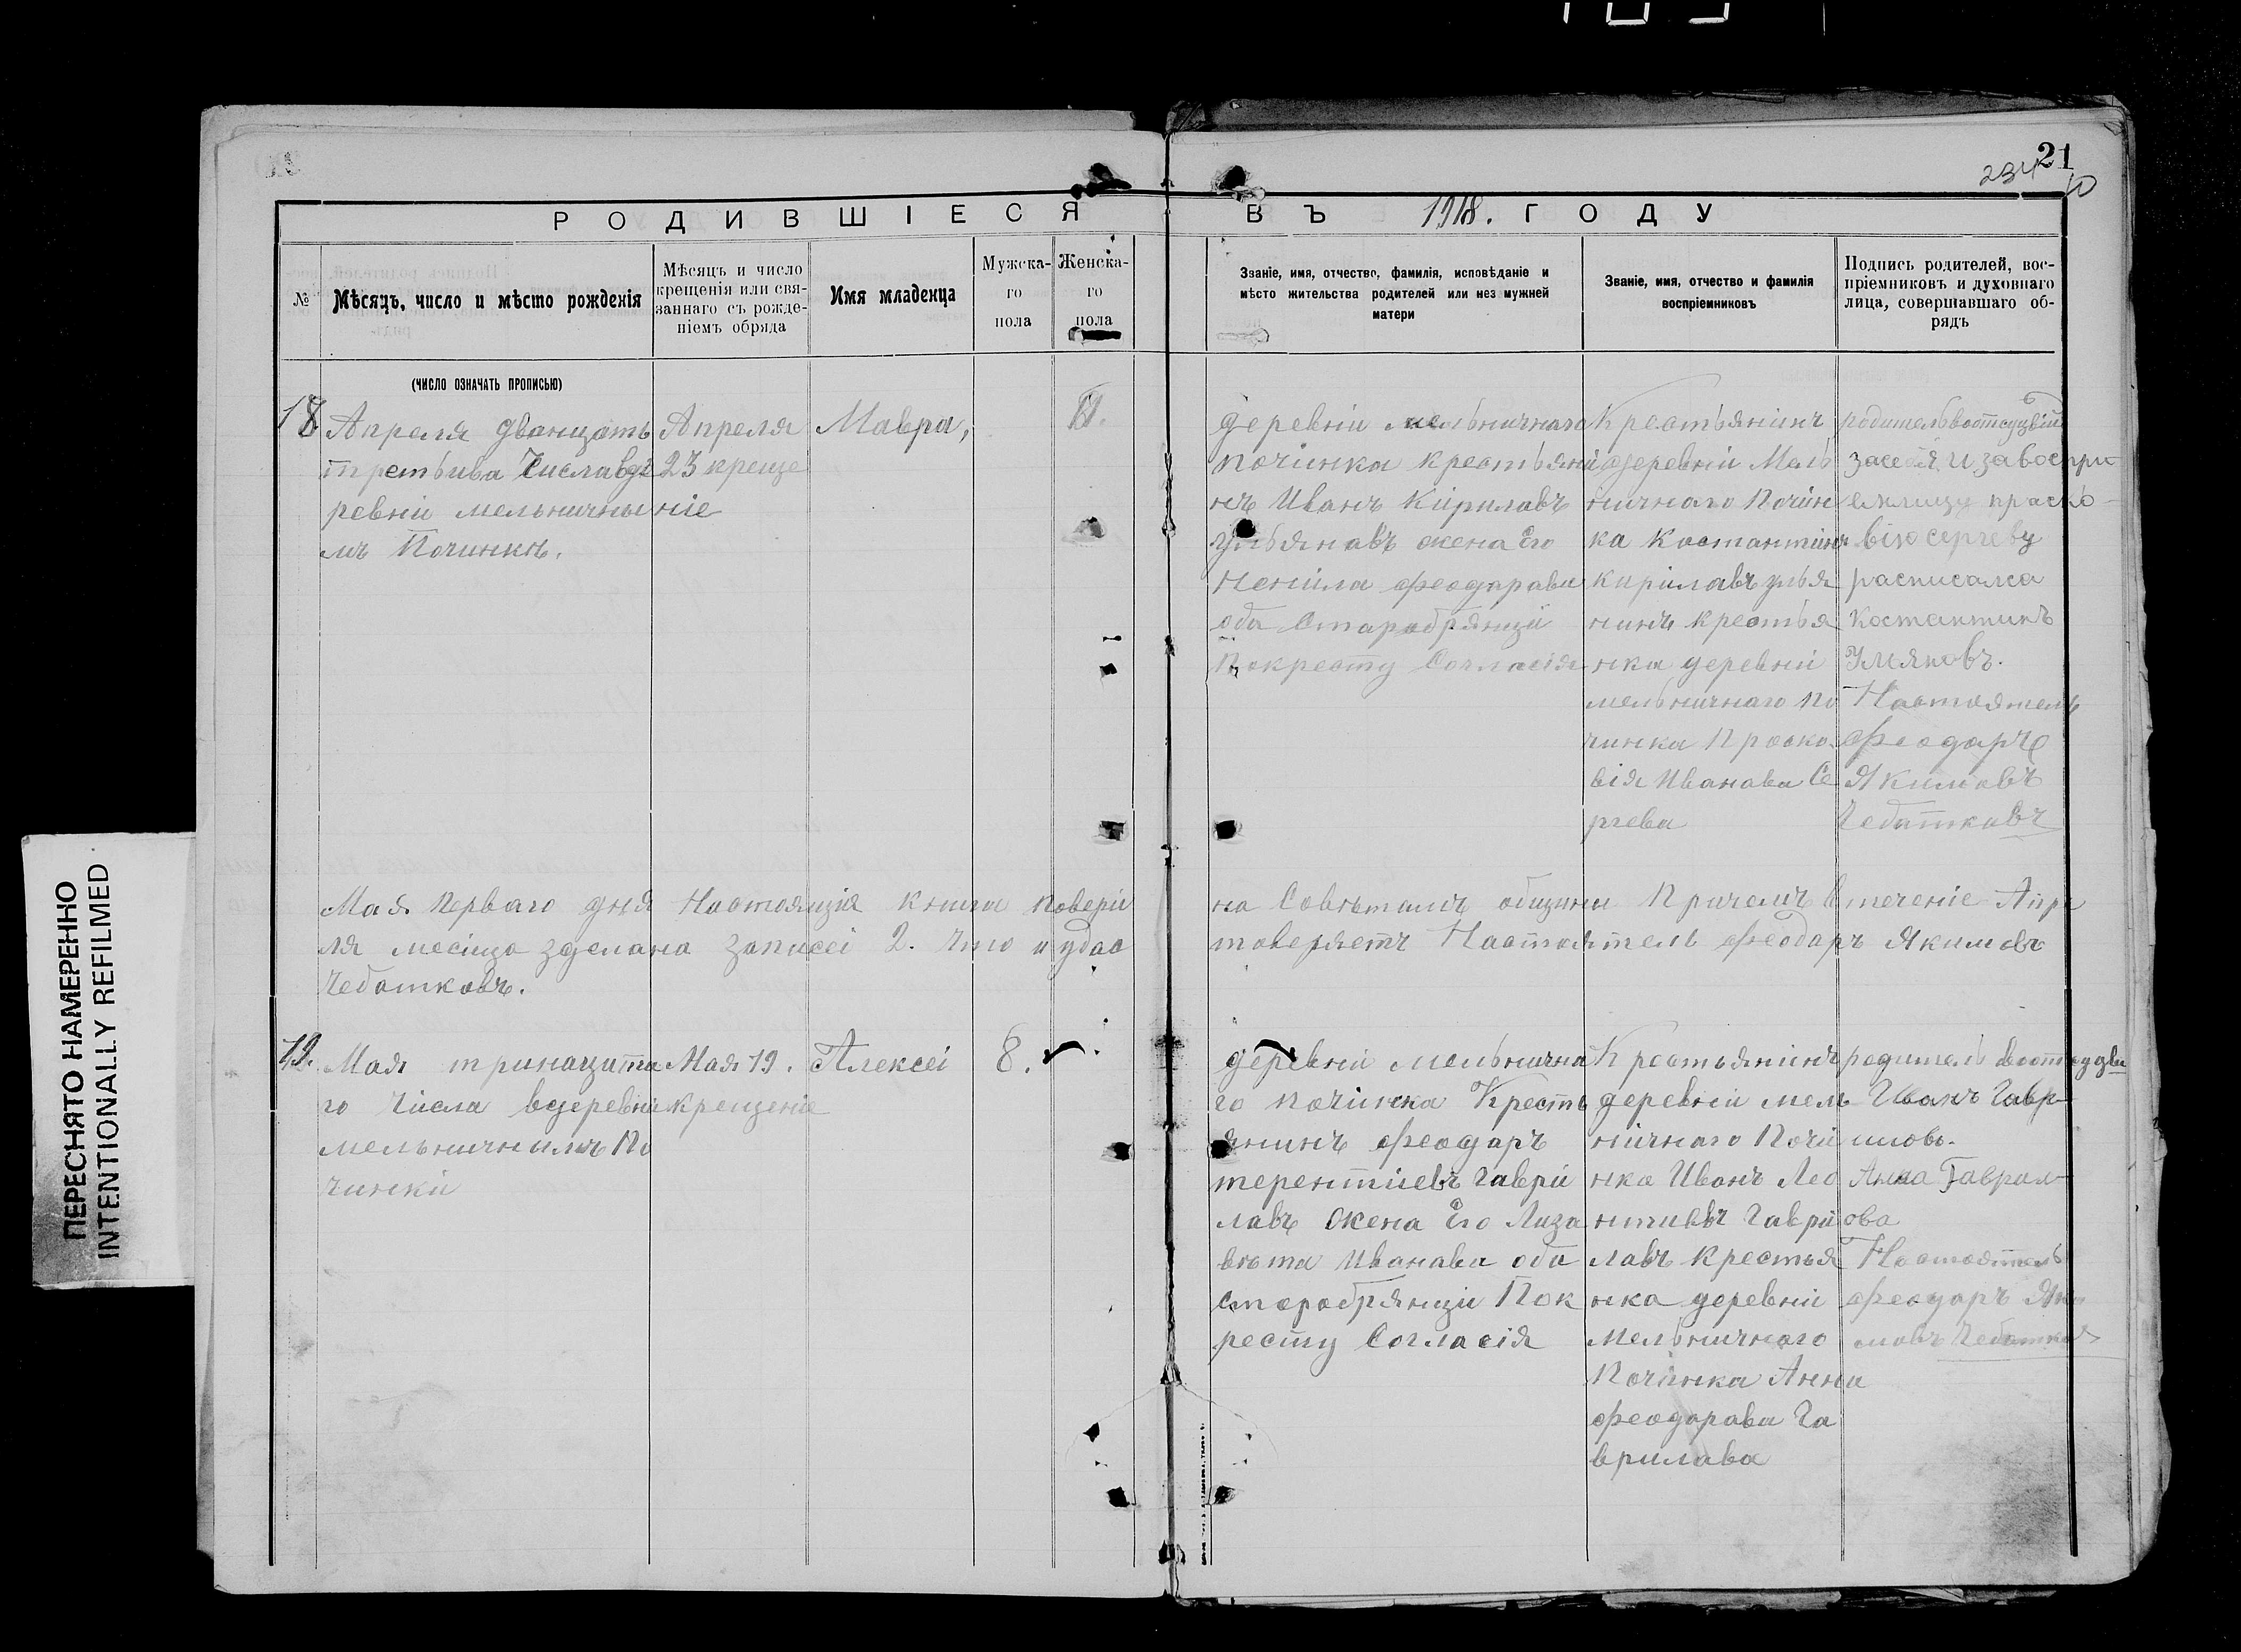 21
234
10
РОДИВШІЕСЯ ВЪ 1918. ГОДУ
№
Мѣсяцъ, число и мѣсто рожденія
Мѣсяцъ и число
крещенія или свя-
заннаго съ рожде-
ніемъ обряда
Имя младенца
Мужска-
го
пола
Женска-
го
пола
Званіе, имя, отчество, фамилія, исповѣданіе и
мѣсто жительства родителей или нез мужней
матери
Званіе, имя, отчество и фамилія
воспріемниковъ
Подпись родителей, вос-
пріемниковъ и духовнаго
лица, совершавшаго об-
рядъ
(ЧИСЛО ОЗНАЧАТЬ ПРОПИСЬЮ)
18
Апреля дванцать
третьива Числа вде
ревніи мельничны
мъ Починкѣ.
Апреля
23 креще
ніе
Мавра,
11.
деревніи мельничнаго
починка крестьяни
нъ Иванъ Кирилавъ
ульянавъ жена Его
Ненила феодарава
оба Старобрянцы
Покресту Согласія
Крестьянинъ
деревніи Мель
ничнаго Почин
ка Костантинъ
кирилавъ улья
нинъ крестья
нка деревніи
мельничнаго по
чинка Проско
вія Иванава Се
ргева
родитель вотсуцвіи
засебя и завоспри
емницу праско-
вію сергеву
расписалса
костантинъ
Ульяновъ.
Настоятель
Феодаръ
Якимовъ
Чебатковъ
Мая Перваго дня Настоящія книга повери
на Совѣтамъ общины Причемъ втеченіе Апре
ля месяца зделана записеі 2. Что и удас
товеряетъ Настоятель феодаръ Якимовъ
Чебатковъ.
19.
Мая тринацата
го Числа вдеревни
мельничнымъ По
чинки
Мая 19.
крещеніе
Алексеі
8.
деревніи мельнична
го починка Кресть
янинъ феодаръ
терентіевъ гаври
лавъ жена Его Лиза
вѣта Иванава оба
старобрянцы Пок
ресту Согласія
Крестьянинъ
деревніи мель
ничнаго Почи
нка Иванъ Лео
нтивъ гаври
лавъ крестья
нка деревніи
Мельничнаго
Починка Анна
феодарава Га
врилава
родитель вотсудви
Иванъ Гавр-
иловъ.
Анна Гаврил-
ова
Настоятель
феодаръ Яки
мовъ Чебатков
ПЕРЕСНЯТО НАМЕРЕННО
INTENTIONALLY REFILMED